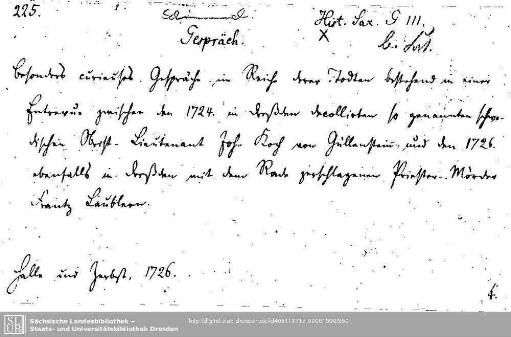 225.
Hist. Sax. G 111,
Gespräch.
X
Besonders curieuses Gespräche im Reiche derer Todten bestehend in einer
Entrevue zwischen den 1724. in Dreßden decollirten so genannten schwe-
dischen Obrist-Lieutenant Joh. Koch von Güllenstein und den 1726.
ebenfalls in Dreßden mit dem Rade zerschlagenen Priester-Mörder
Frantz Laublern.
Halle und Zerbst, 1726.
4.
Sächsische Landesbibliothek –
Staats- und Universitätsbibliothek Dresden
SLUB